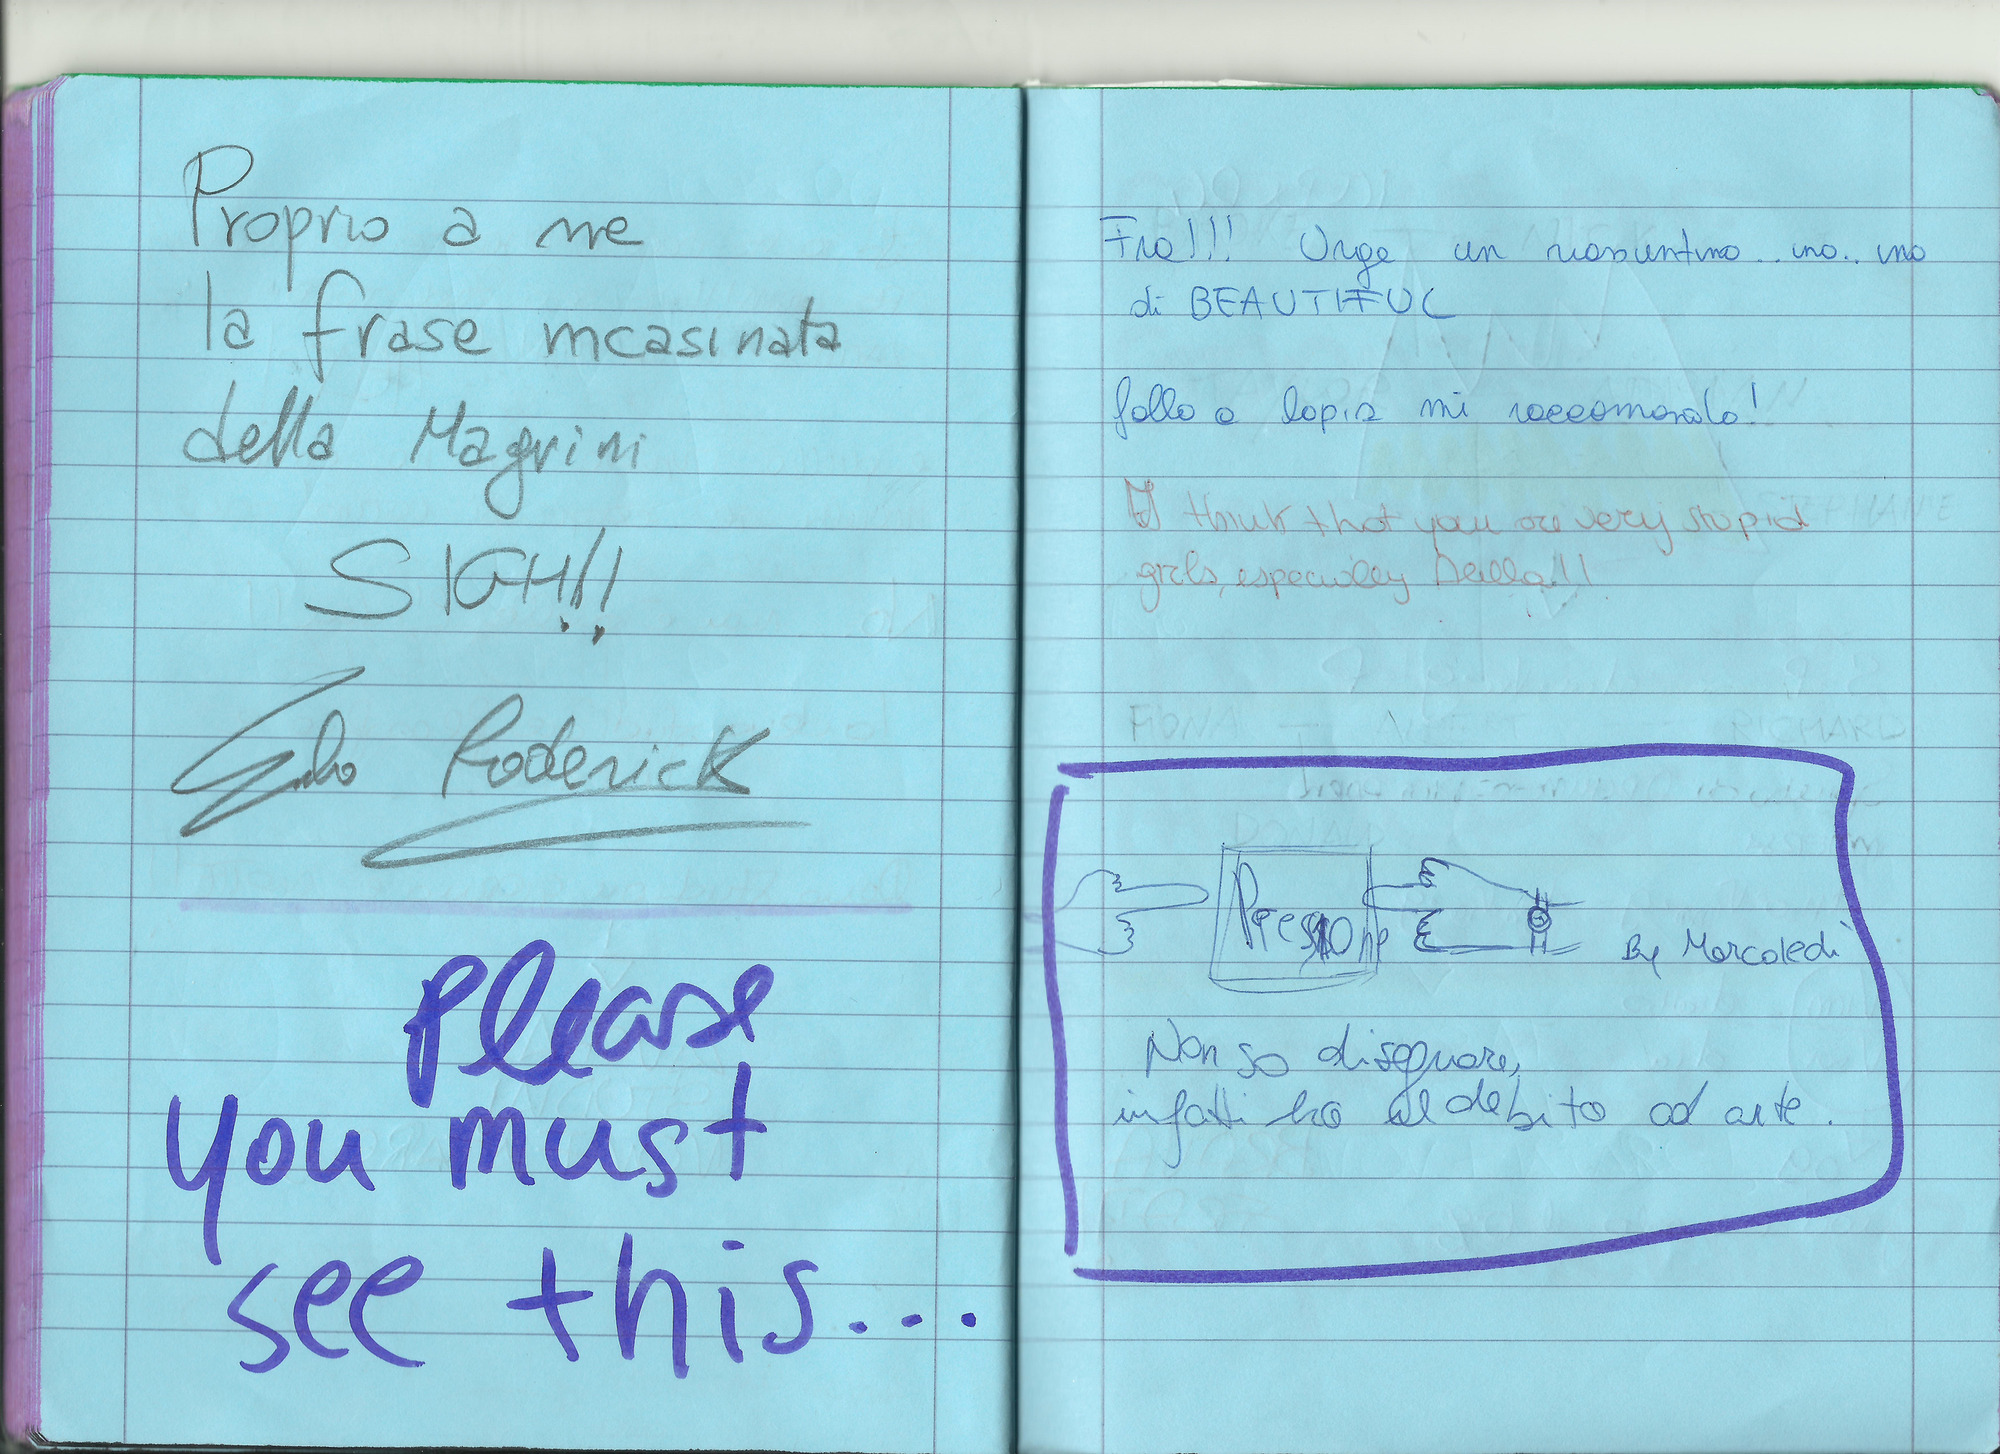 Proprio a me
la frase incasinata
della Magrini
SIGH!!
Roderick
please
you must
see this...
Fra!!! Urge un riassuntino..ino..ino
di BEAUTIFUL
fallo a lapis mi raccomando!
I think that you are very stupid
girls, especially Dalila!!!
Pressione
By Mercoledì
Non so disegnare,
infatti ho il debito ad arte.
FIONA
RICHARD